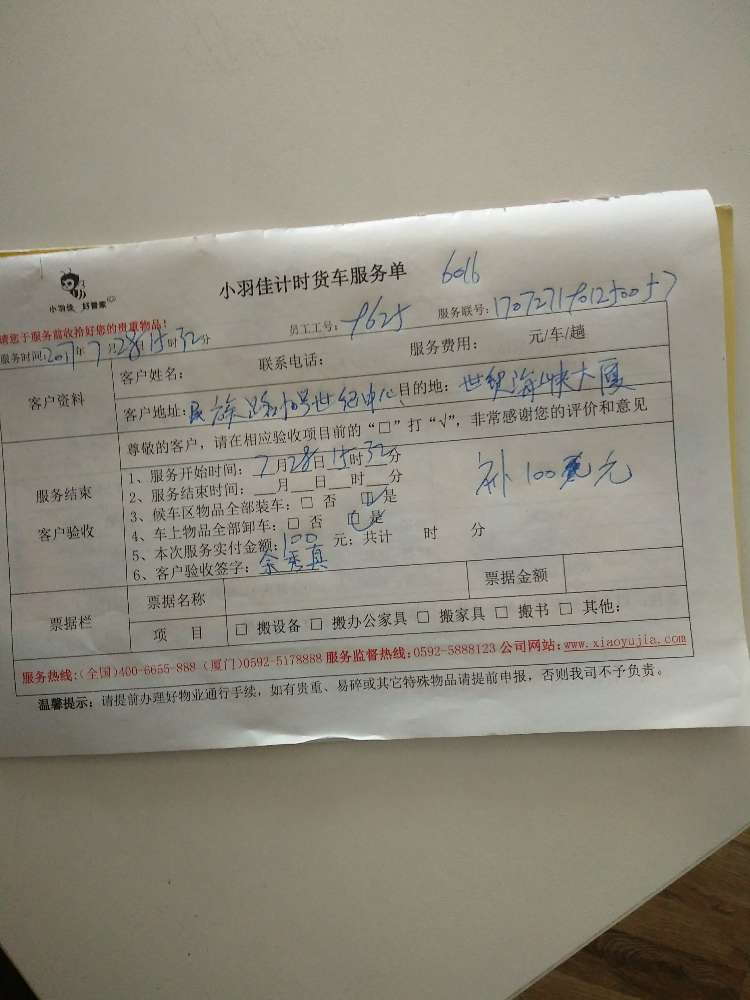 小羽佳 好管家
小羽佳计时货车服务单 6016
请您于服务前收拾好您的贵重物品!
服务时间:2017年7月28日15时32分 员工工号: 9625 服务联号:
客户资料
客户姓名: 联系电话: 服务费用: 元/车/趟
客户地址:民族路 世纪中心 目的地: 世纪海峡大厦
服务结束
客户验收
尊敬的客户,请在相应验收项目前的“□”打“√”,非常感谢您的评价和意见
1、服务开始时间: 7月28日15时32分
2、服务结束时间: __月__日__时__分
3、候车区物品全部装车: □ 否 □ 是
4、车上物品全部卸车: □ 否 □ 是
5、本次服务实付金额: 100 元; 共计 时 分
6、客户验收签字: 余秀真
补100元
票据栏
票据名称 票据金额
项 目 □ 搬设备 □ 搬办公家具 □ 搬家具 □ 搬书 □ 其他:
服务热线:(全国)400-6655-888 (厦门)0592-5178888 服务监督热线:0592-5888123 公司网站:www.xiaoyujia.com
温馨提示: 请提前办理好物业通行手续,如有贵重、易碎或其它特殊物品请提前申报,否则我司不予负责。